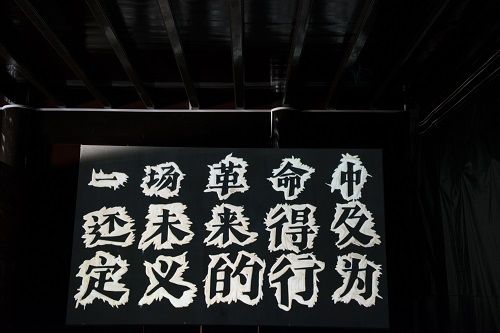 一场革命中
还未来得及
定义的行为